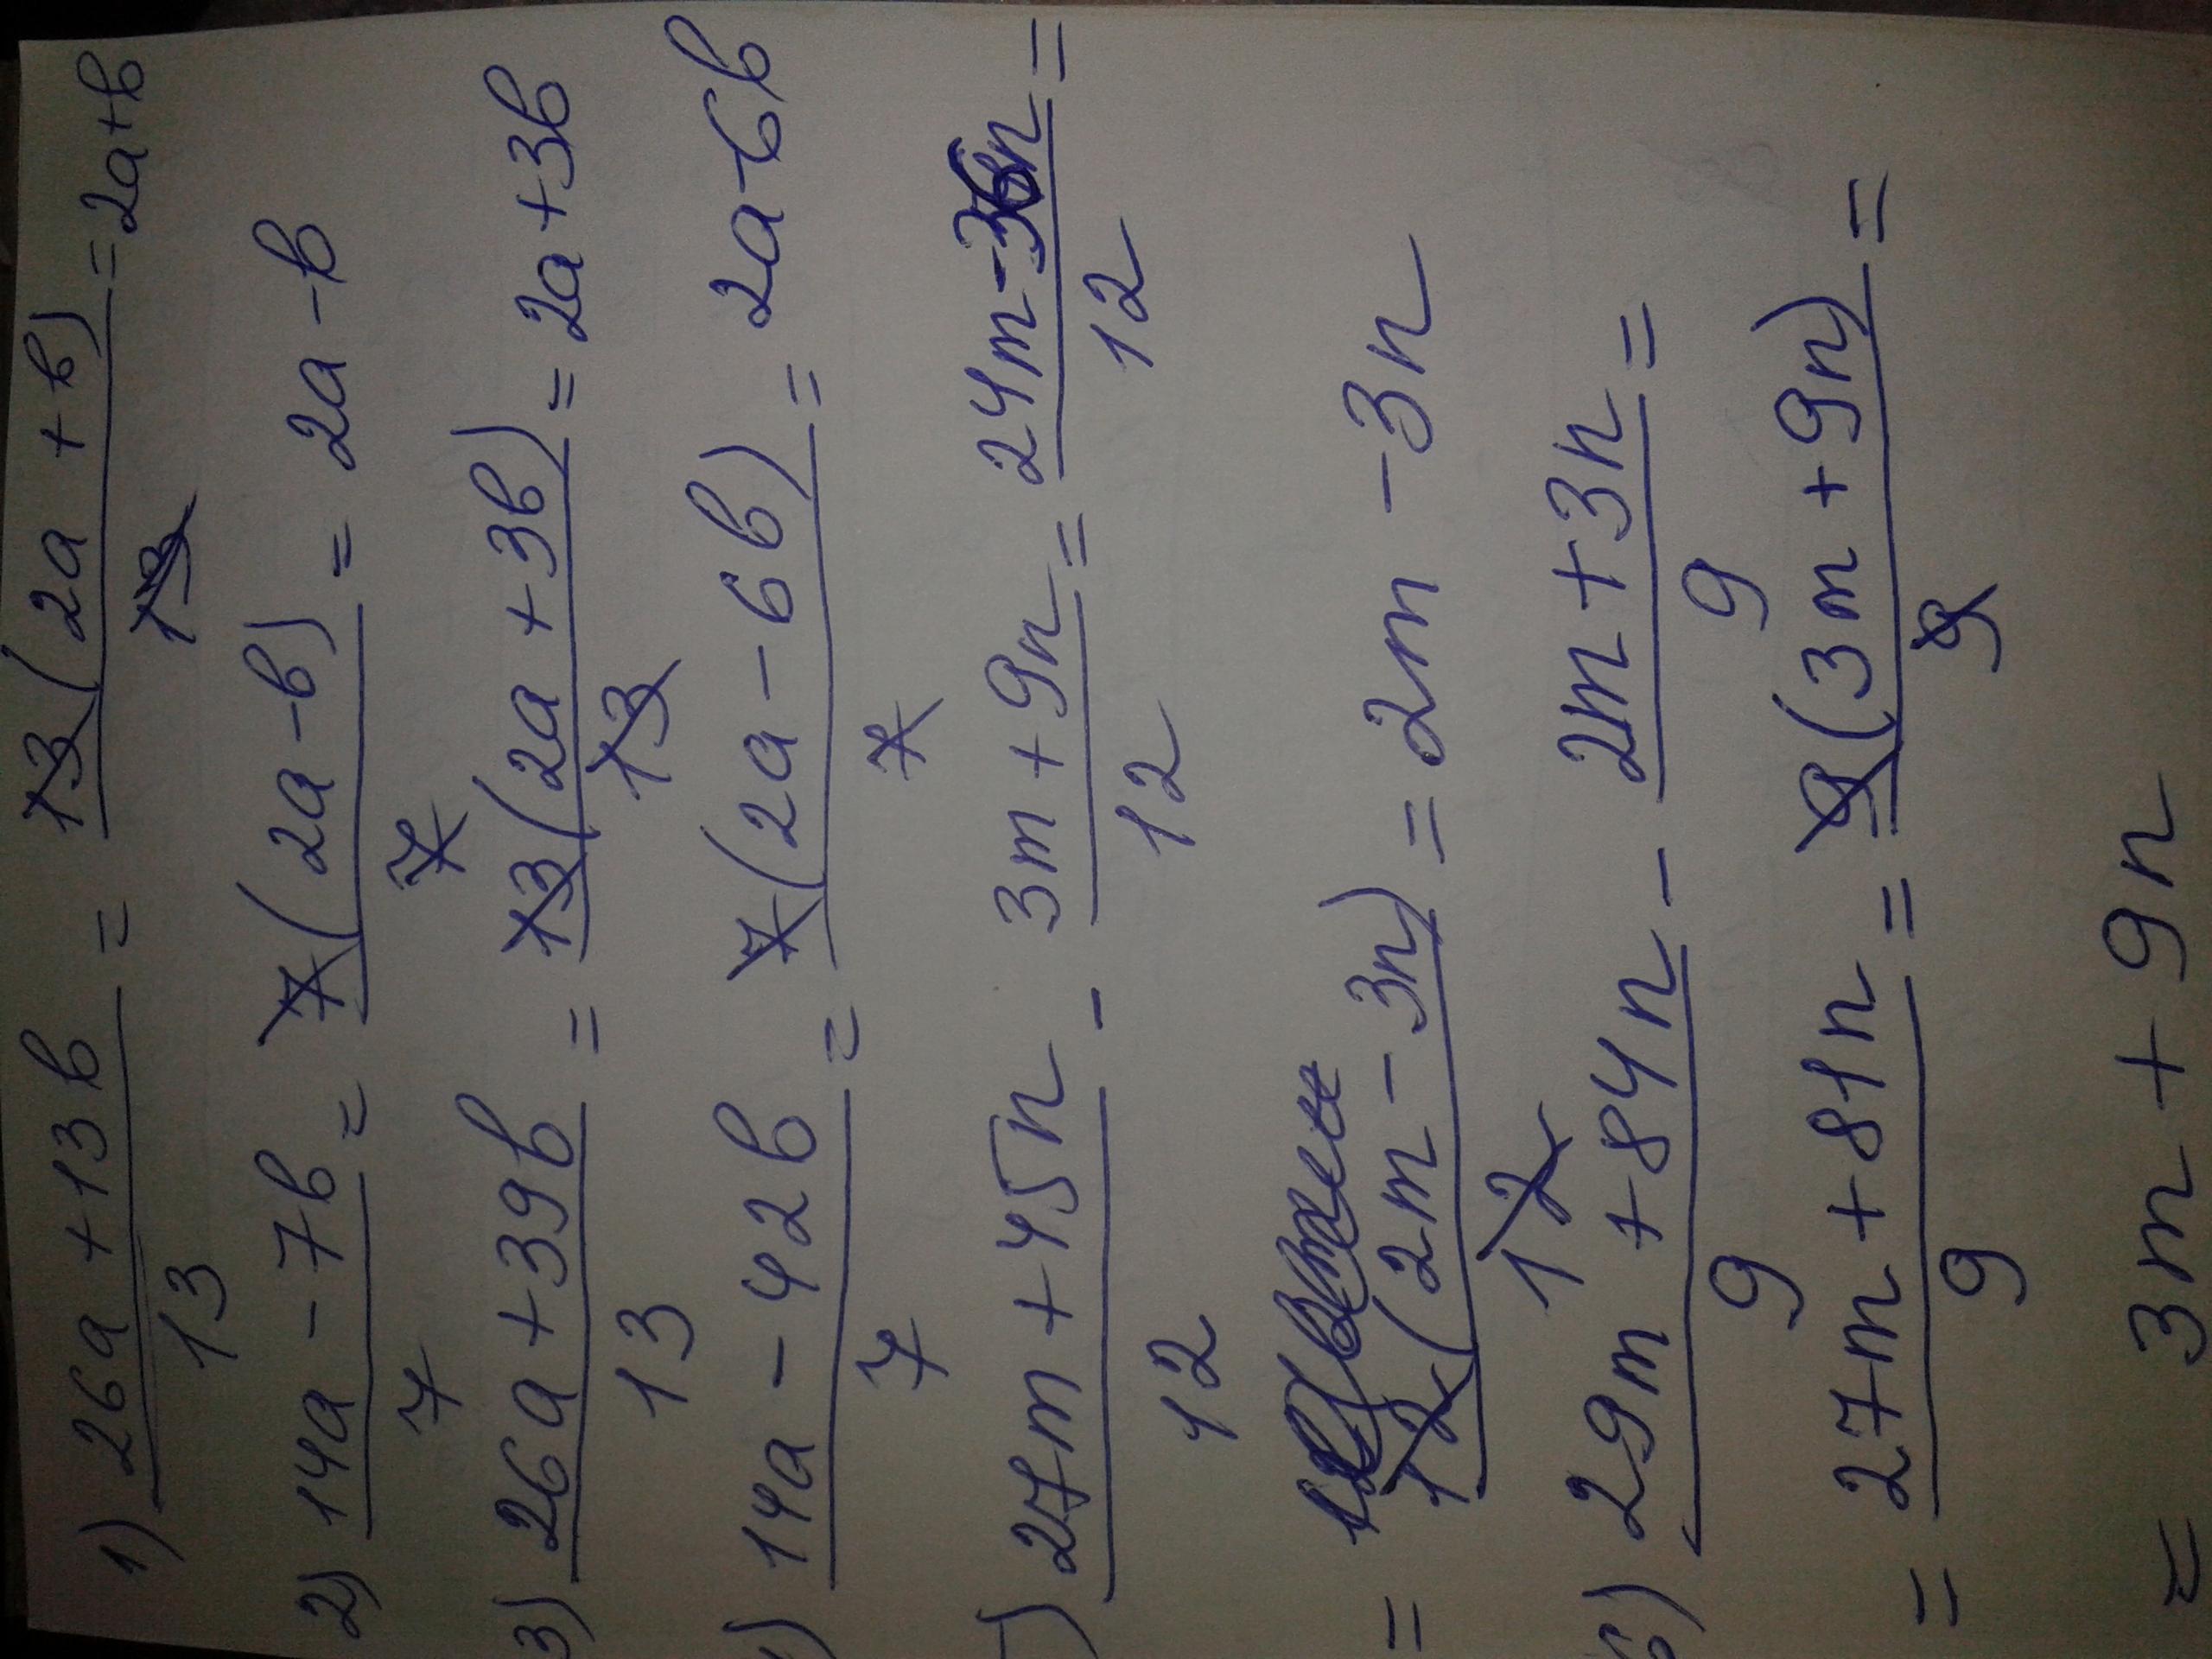 1) 26a + 13b / 13 = 13(2a + b) / 13 = 2a + b
2) 14a - 7b / 7 = 7(2a - b) / 7 = 2a - b
3) 26a + 39b / 13 = 13(2a + 3b) / 13 = 2a + 3b
) 14a - 42b / 7 = 7(2a - 6b) / 7 = 2a - 6b
) 27m + 45n / 12 - 3m + 9n / 12 = 24m - 36n / 12 =
= 12(2m - 3n) / 12 = 2m - 3n
6) 29m + 84n / 9 - 2m + 3n / 9 =
= 27m + 81n / 9 = 9(3m + 9n) / 9 =
= 3m + 9n